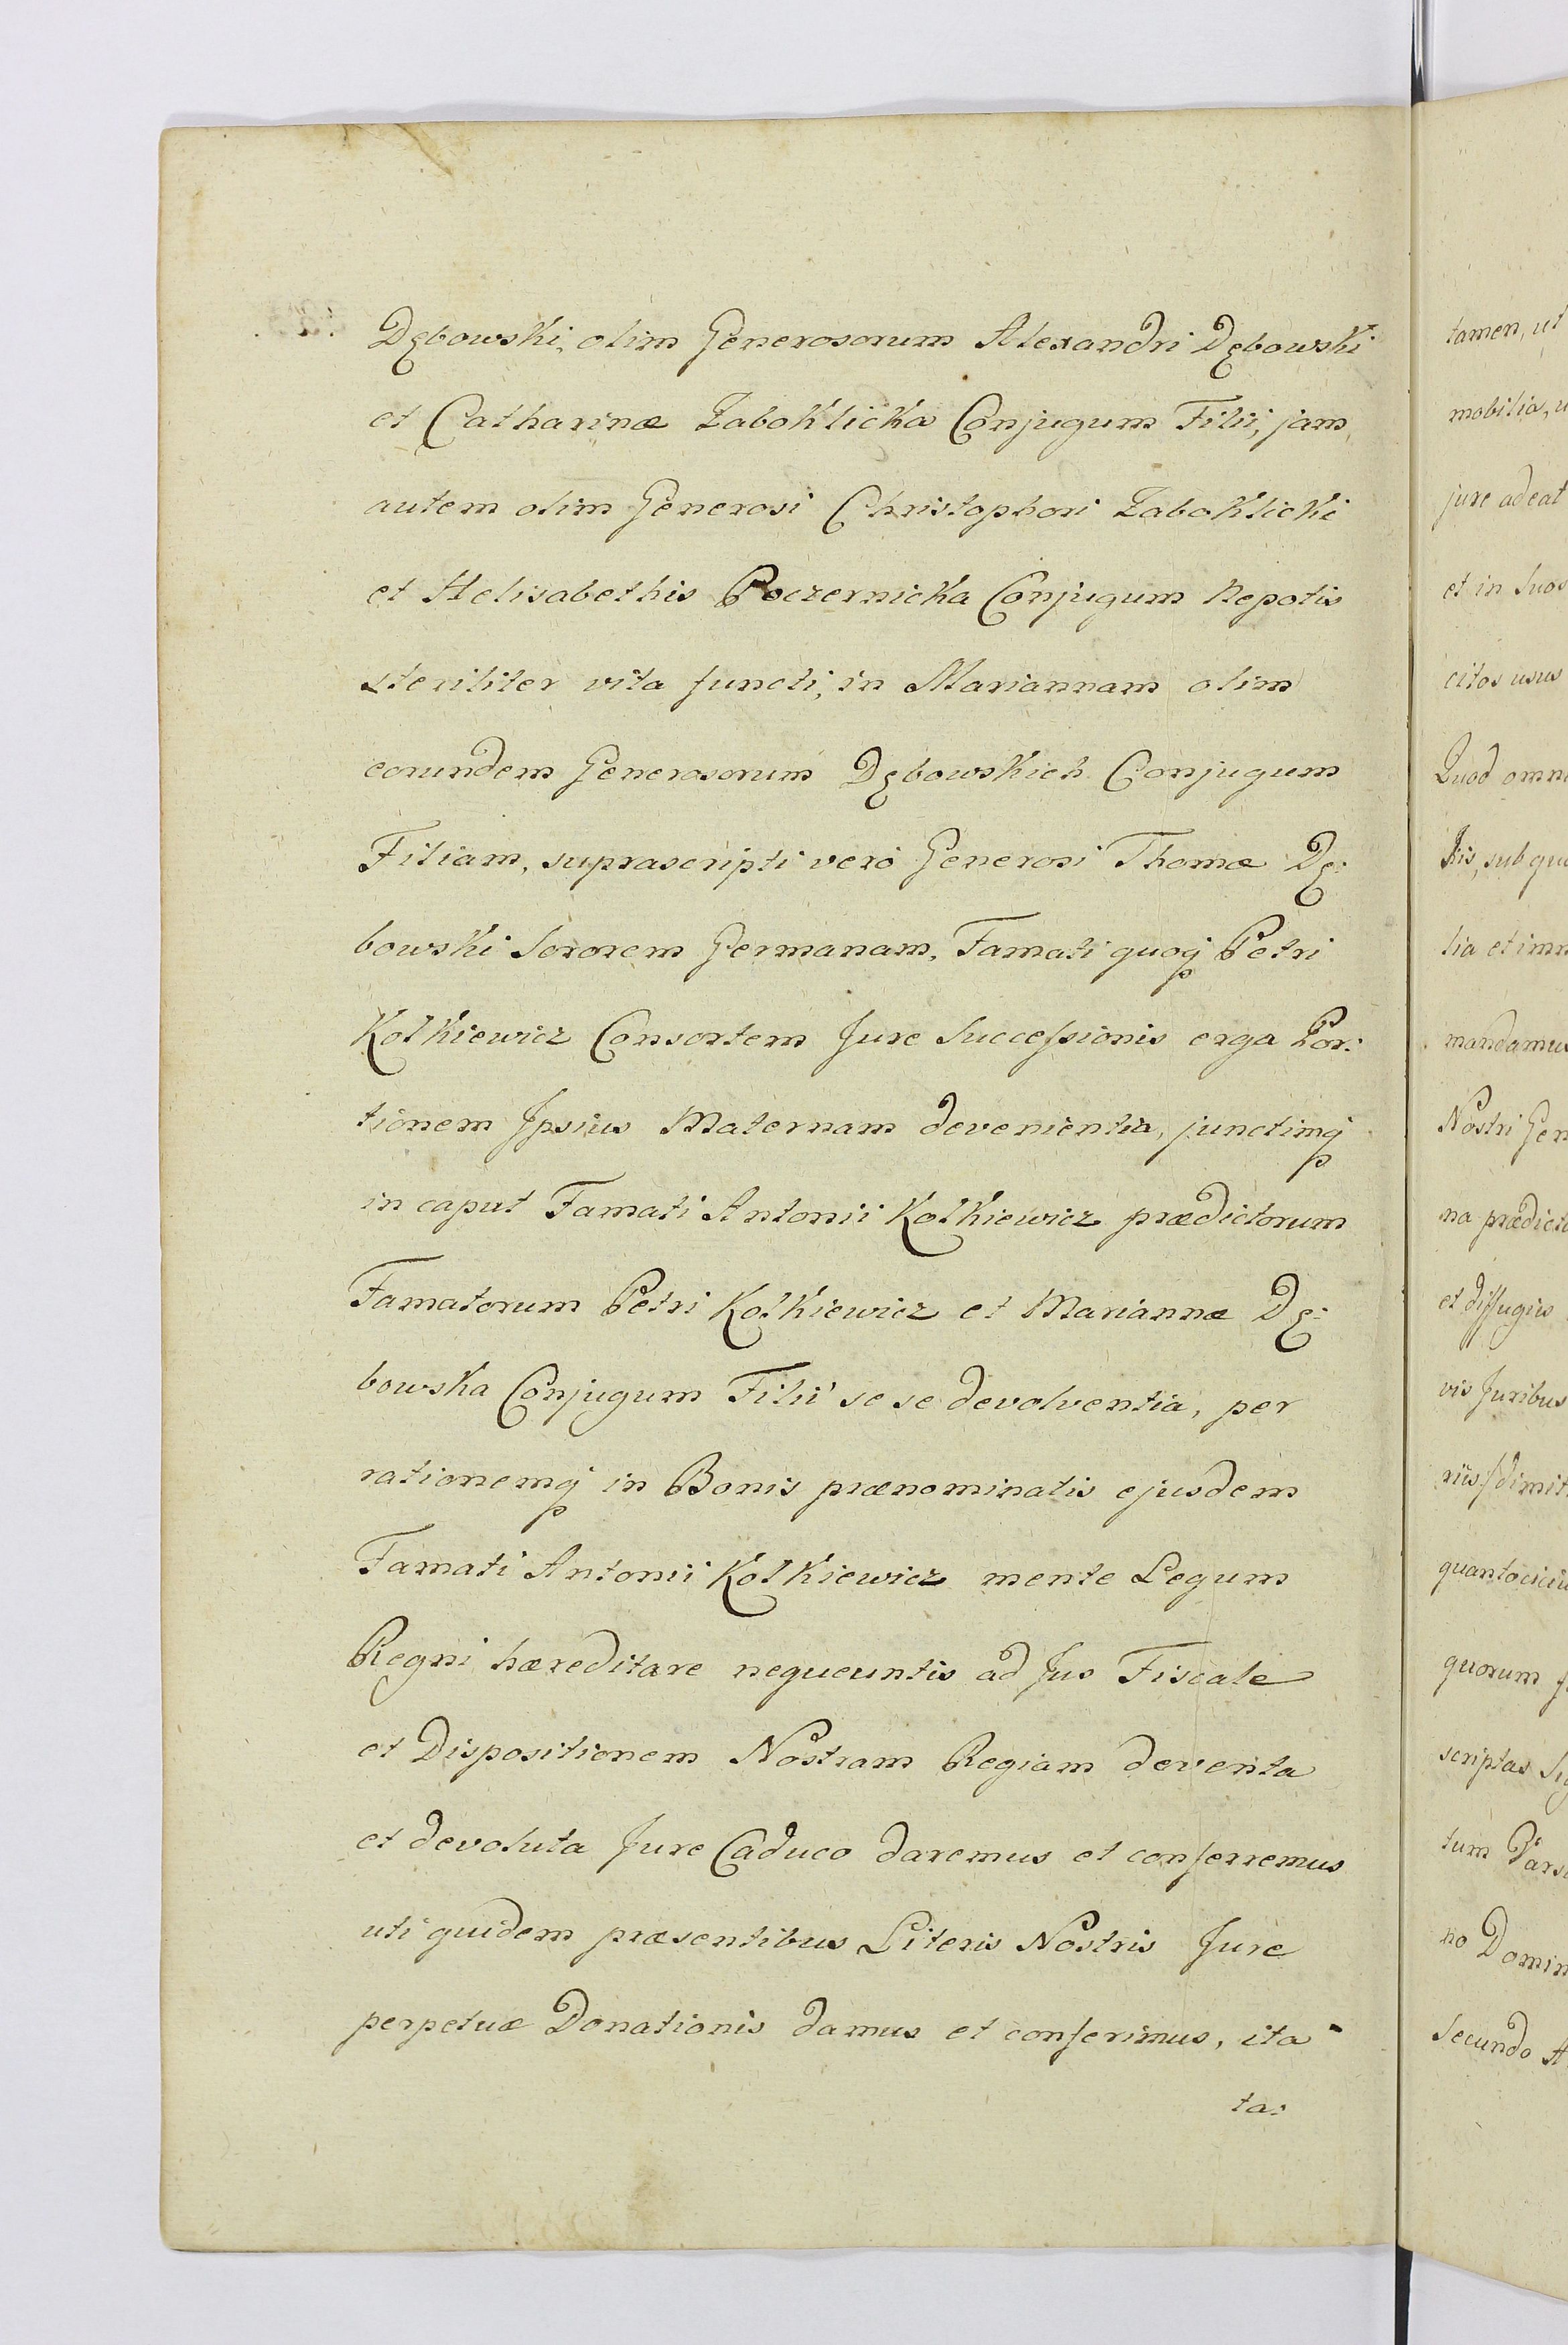 Dębowski, olim Generosorum Alexandri Dębowski
et Catharinæ Zaboklicka Conjugum Filii, jam
autem olim Generosi Christophori Zaboklicki
et Helisabethis Poczernicka Conjugum Nepotis
steriliter vita functi, in Mariannam olim
eorundem Generosorum Dębowskich Conjugum
Filiam, suprascripti verò Generosi Thomæ Dę:
bowski Sororem Germanam, Famati quoq Petri
Kolkiewicz Consortem Jure Successionis erga Por:
tionem Ipsius Maternam devenientia, junctimq
in caput Famati Antonii Kolkiewicz prædictorum
Famatorum Petri Kolkiewicz et Mariannæ Dę:
bowska Conjugum Filii se se devolventia, per
rationemq in Bonis prænominatis ejusdem
Famati Antonii Kolkiewicz mente Legum
Regni hæreditare nequeuntis ad Jus Fiscale
et Dispositionem Nostram Regiam deventa
et devoluta Jure Caduco daremus et conferremus
uti quidem præsentibus Literis Nostris Jure
perpetuæ Donationis damus et conferimus, ita
ta:
tamen, ut
mobilia, u
jure adeat
et in Suos
citos usus
Quod omni
sub qu
lia et imm
mandamus
Nostri Gen
na prædict
et diffugis
vis Juribus
riis dimit
quantociciu
quorum
scriptas Sig
tum Vars
no Domin
Secundo